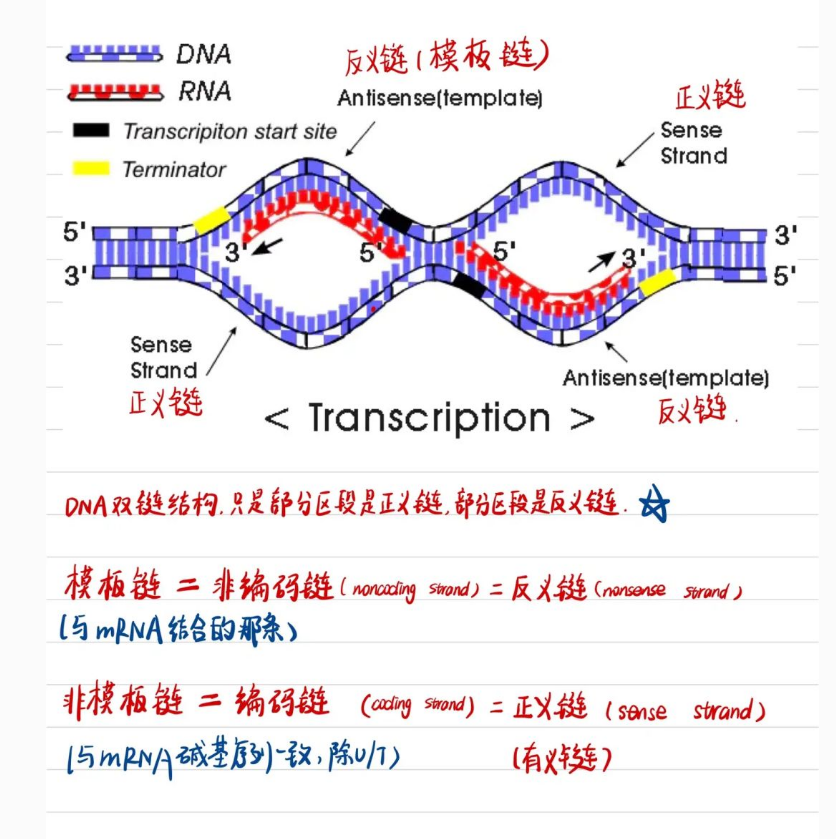 DNA
RNA
Transcripiton start site
Terminator
反义链(模板链)
Antisense(template)
正义链
Sense
Strand
5'
3'
3'
5'
5'
3'
3'
5'
Sense
Strand
正义链
Antisense(template)
反义链.
< Transcription >
DNA双链结构,只是部分区段是正义链,部分区段是反义链.
模板链 = 非编码链(noncoding strand) = 反义链(nonsense strand)
(与mRNA结合的那条)
非模板链 = 编码链 (coding strand) = 正义链 (sense strand)
(与mRNA碱基序列一致,除U/T) (有义链)